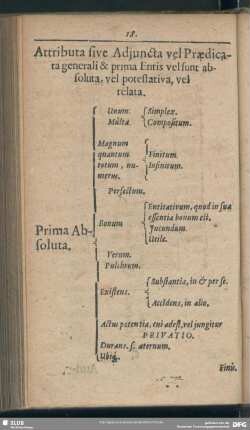 18.
Attributa sive Adjuncta vel Prædica-
ta generali & prima Entis vel sunt ab-
soluta, vel potestativa, vel
relata.
Unum. Simplex.
Multa. Compositum.
Magnum
quantum Finitum.
totum, nu- Infinitum.
merus.
Perfectum.
Entitativum, quod in sua
essentia bonum est.
Bonum Jucundum.
Utile.
Prima Ab-
soluta.
Verum.
Pulchrum.
Substantia, in & per se.
Existens.
Accidens, in alio.
Actus potentia, cui adest, vel jungitur
PRIVATIO.
Durans. s. æternum.
Ubiq;
Finis.
SLUB
DFG